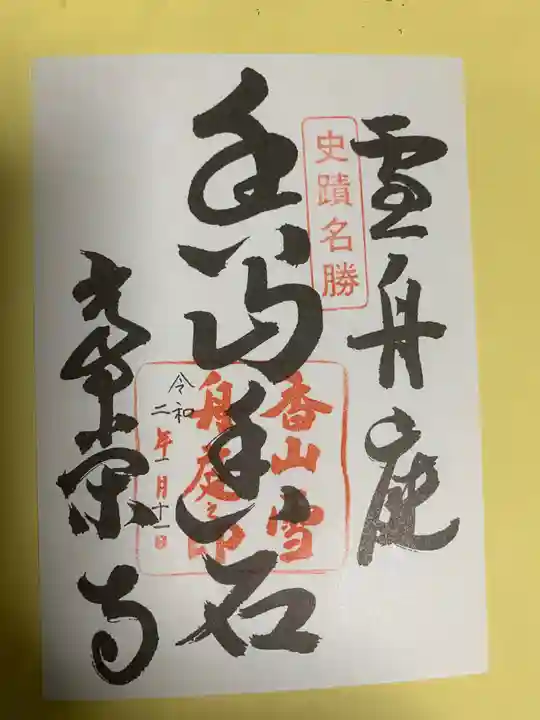 雪舟庭
史蹟名勝
香山雪
舟庭之印
令和
二年一月十一日
常栄寺